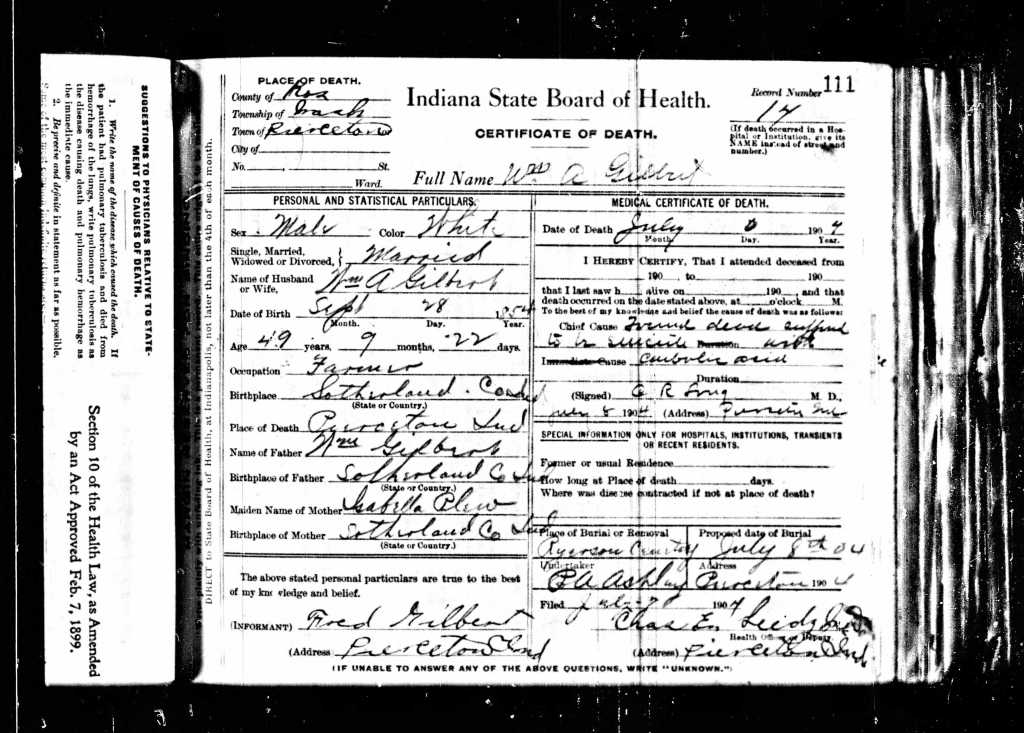 111
PLACE OF DEATH.
County of Kos
Township of Wash
Town of Pierceton
City of
No. St.
Ward.
Indiana State Board of Health.
CERTIFICATE OF DEATH.
Full Name Wm A Gilbert
Record Number
17
(If death occurred in a Hos-
pital or Institution, give its
NAME instead of street and
number.)
PERSONAL AND STATISTICAL PARTICULARS.
Sex Male Color White
Single, Married,
Widowed or Divorced, } Married
Name of Husband
or Wife, Wm A Gilbert
Date of Birth Sept 28 1854
Month. Day. Year.
Age 49 years, 9 months, 22 days.
Occupation Farmer
Birthplace Sotherland Co Ind
(State or Country.)
Place of Death Pierceton Ind
Name of Father Wm Gilbert
Birthplace of Father Sotherland Co Ind
(State or Country.)
Maiden Name of Mother Isabella Plew
Birthplace of Mother Sotherland Co Ind
(State or Country.)
The above stated personal particulars are true to the best
of my knowledge and belief.
(INFORMANT) Fred Gilbert
(Address Pierceton Ind
MEDICAL CERTIFICATE OF DEATH.
Date of Death July 1904
Month. Day. Year.
I HEREBY CERTIFY, That I attended deceased from
190 , to 190
that I last saw h alive on 190 , and that
death occurred on the date stated above, at o'clock M.
To the best of my knowledge and belief the cause of death was as follows:
Chief Cause Found dead supposed
to be suicide Duration with
Immediate Cause carbolic acid
Duration
(Signed) C R Long M D.,
July 8 1904 (Address) Pierceton Ind
SPECIAL INFORMATION ONLY FOR HOSPITALS, INSTITUTIONS, TRANSIENTS
OR RECENT RESIDENTS.
Former or usual Residence
How long at Place of death days.
Where was disease contracted if not at place of death?
Place of Burial or Removal Proposed date of Burial
Ryerson Cemetery July 8th 04
Undertaker Address
P A Ashley Pierceton 1904
Filed July 1904
Chas E.
Health Officer or Deputy.
(Address) Pierceton Ind.
(IF UNABLE TO ANSWER ANY OF THE ABOVE QUESTIONS, WRITE "UNKNOWN.")
DIRECT to State Board of Health, at Indianapolis, not later than the 4th of each month.
SUGGESTIONS TO PHYSICIANS RELATIVE TO STATE-
MENT OF CAUSES OF DEATH.
1. Write the name of the disease which caused the death. If
the patient had pulmonary tuberculosis and died from
hemorrhage of the lungs, write pulmonary tuberculosis as
the disease causing death and pulmonary hemorrhage as
the immediate cause.
2. Be precise and definite in statement as far as possible.
Section 10 of the Health Law, as Amended
by an Act Approved Feb. 7, 1899.